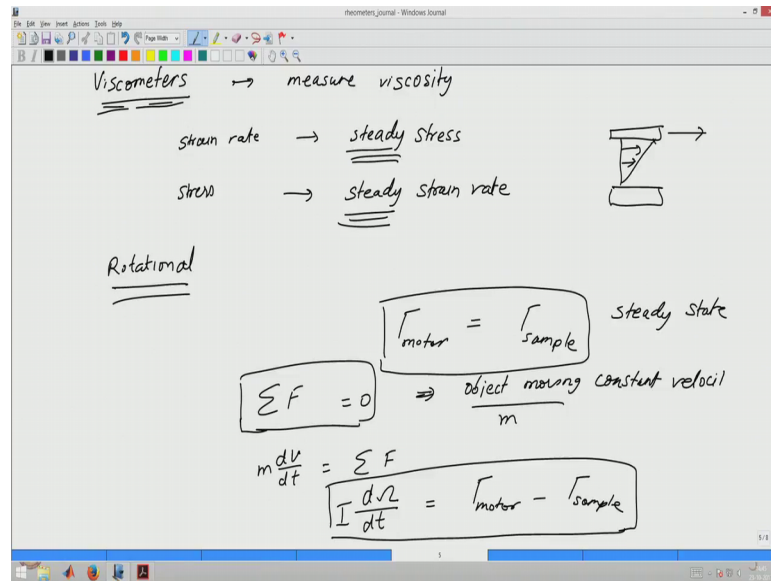 rheometers_journal - Windows Journal
File Edit View Insert Actions Tools Help
Page Width
B I
Viscometers → measure viscosity
strain rate → steady stress
stress → steady strain rate
Rotational
Γmotor = Γsample steady state
ΣF = 0 ⇒ object moving constant velocit
m
m dv/dt = ΣF
I dΩ/dt = Γmotor − Γsample
5